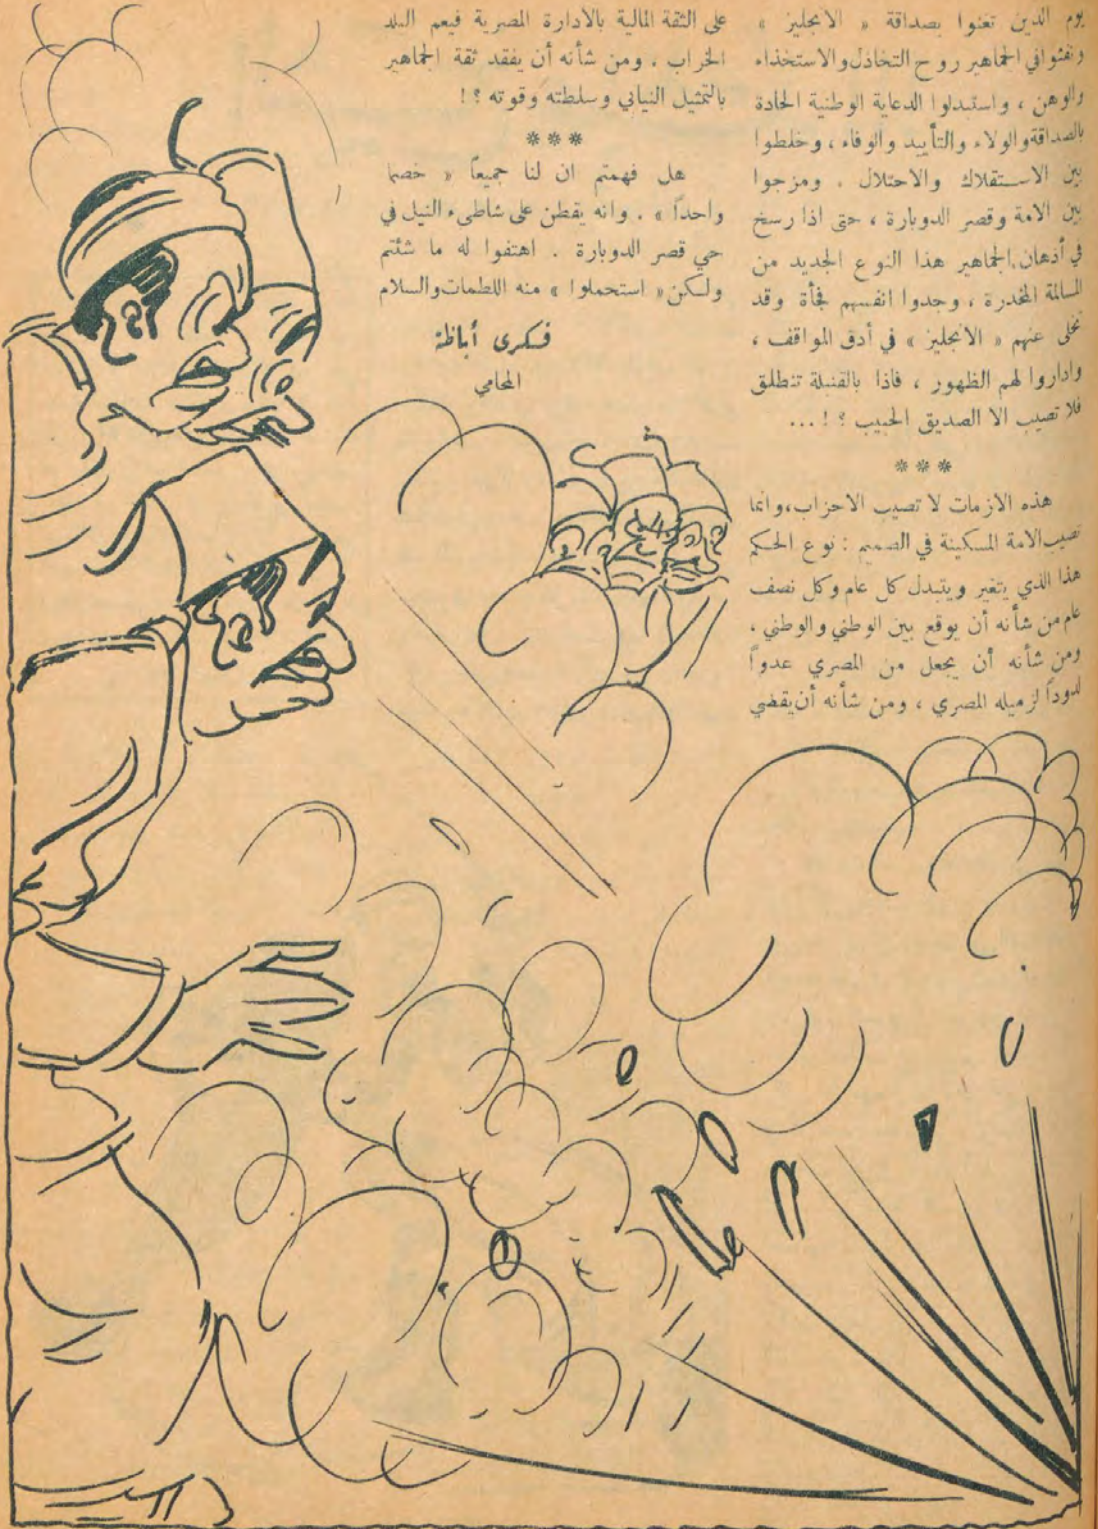 يوم الذين تغنوا بصداقة « الانجليز »
ونفثوا في الجماهير روح التخاذل والاستخذاء
والوهن ، واستبدلوا الدعاية الوطنية الحادة
بالصداقة والولاء والتأييد والوفاء ، وخلطوا
بين الاستقلاك والاحتلال . ومزجوا
بين الامة وقصر الدوبارة ، حتى اذا رسخ
في أذهان الجماهير هذا النوع الجديد من
المسالمة المخدرة ، وجدوا انفسهم فجأة وقد
تخلى عنهم « الانجليز » في أدق المواقف ،
واداروا لهم الظهور ، فاذا بالقنبلة تنطلق
فلا تصيب الا الصديق الحبيب ؟ ! ...
***
هذه الازمات لا تصيب الاحزاب، وانما
تصيب الامة المسكينة في الصميم : نوع الحكم
هذا الذي يتغير ويتبدل كل عام وكل نصف
عام من شأنه أن يوقع بين الوطني والوطني ،
ومن شأنه أن يجعل من المصري عدواً
لدوداً لزميله المصري ، ومن شأنه أن يقضي
على الثقة المالية بالادارة المصرية فيعم البلد
الخراب ، ومن شأنه أن يفقد ثقة الجماهير
بالتمثيل النيابي وسلطته وقوته ؟ !
***
هل فهمتم ان لنا جميعاً « خصما
واحداً » . وانه يقطن على شاطىء النيل في
حي قصر الدوبارة . اهتفوا له ما شئتم
ولكن « استحملوا » منه اللطمات والسلام
فكرى أباظة
المحامي